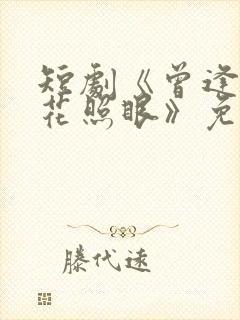 短劇《曾逢
花照眼》免
滕代遠